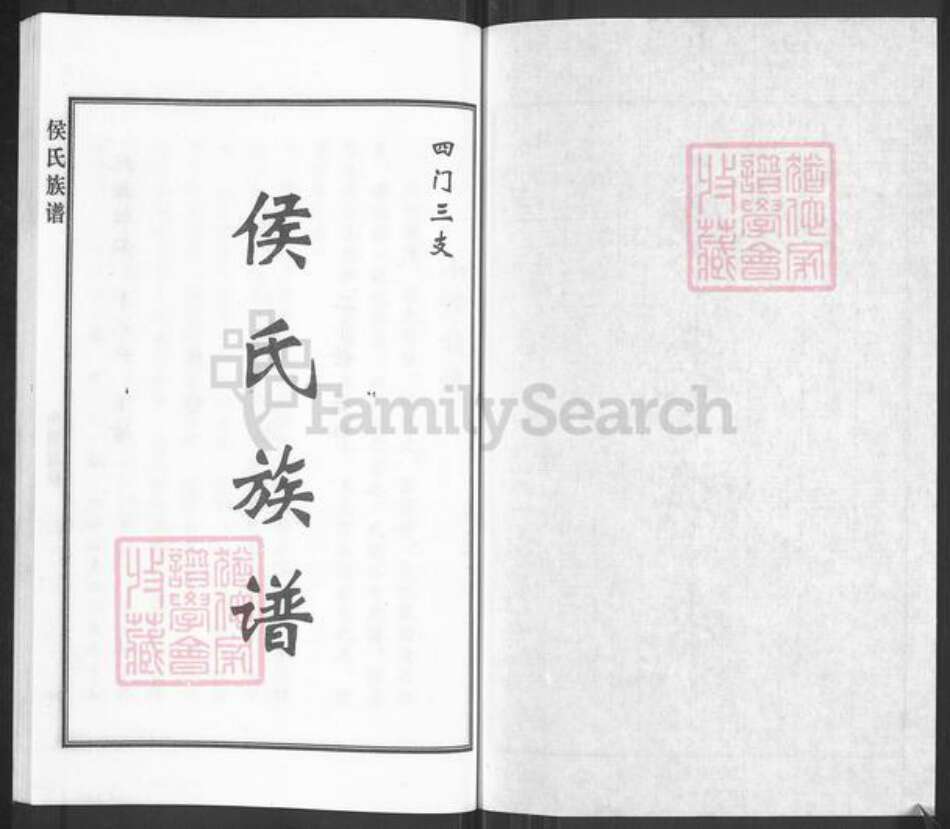 四门三支
侯氏族谱
侯氏族谱
猶他家
譜學會
收藏
猶他家
譜學會
收藏
FamilySearch